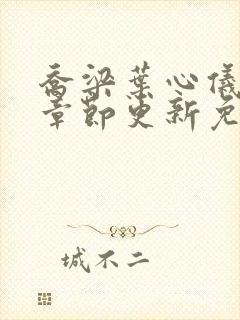 乔梁葉心儀
章節更新免
城不二